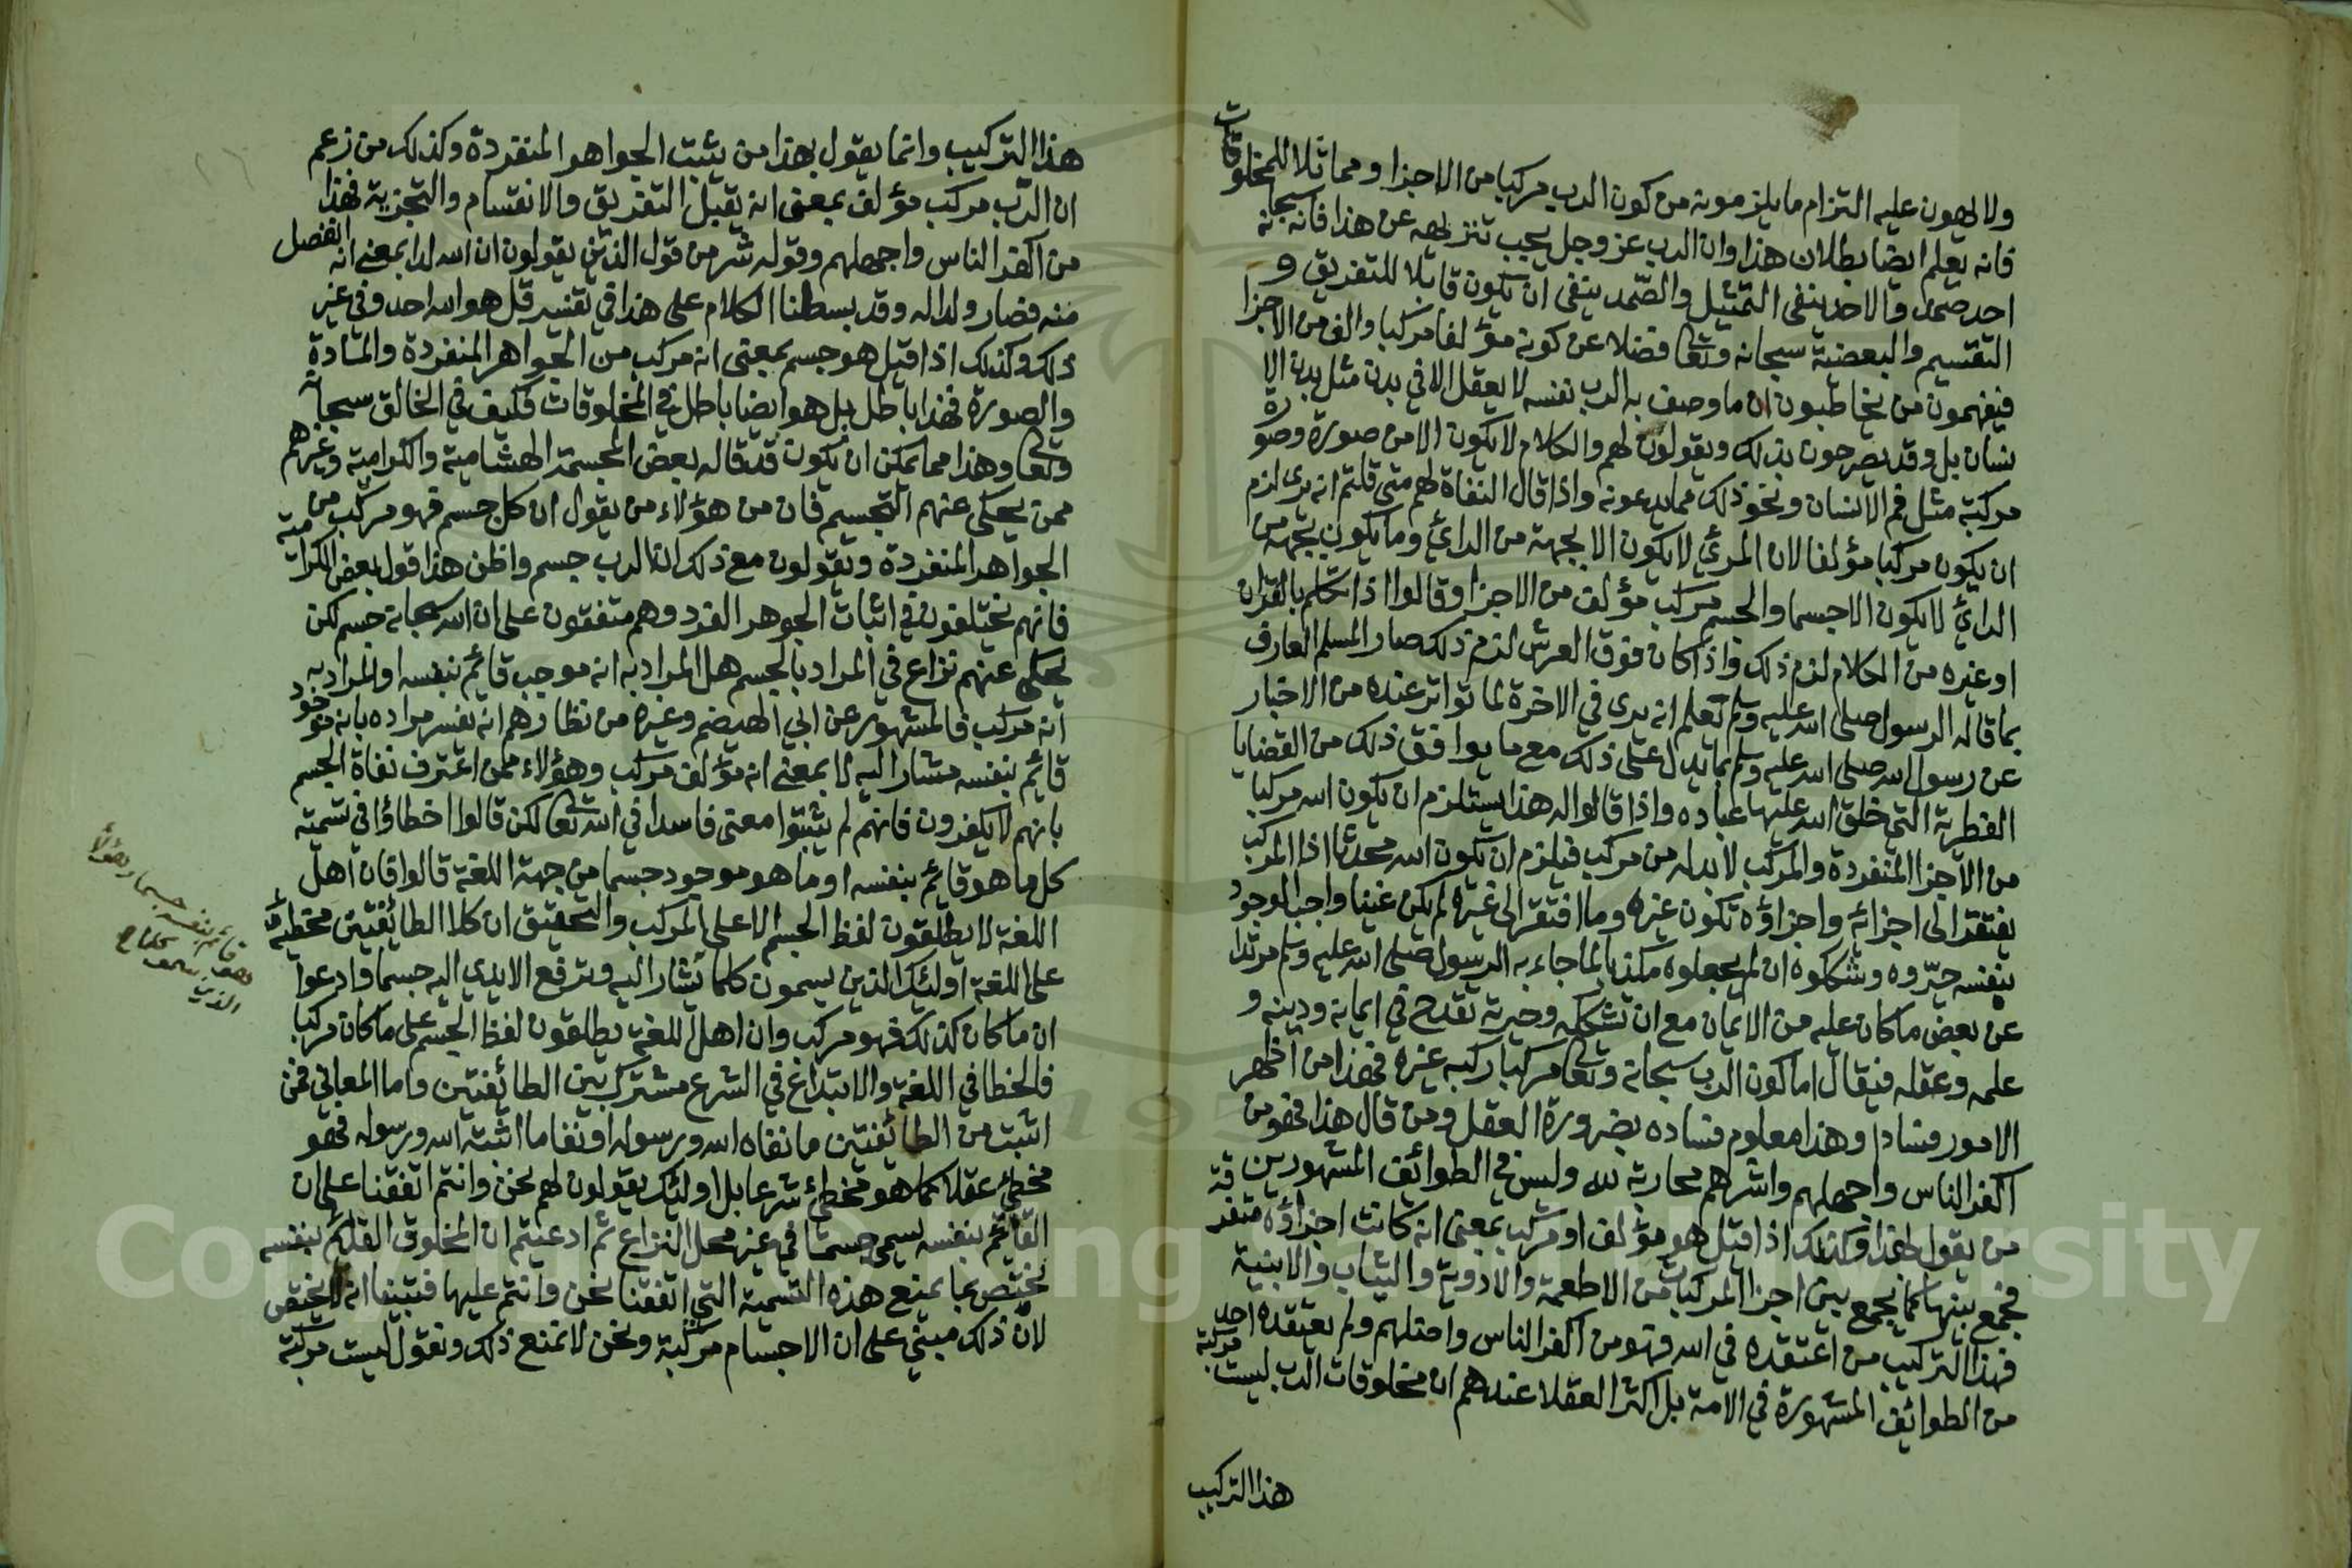 ولا لهون عليه التزام ما يلزمونه من كون الرب مركبا من الاجزا ومماثلا للمخلوقات
فانه يعلم ايضا بطلان هذا وان الرب عز وجل يجب تنزيهه عن هذا فانه سبحانه
احد صمد والاحد ينفى التمثيل والصمد ينفى ان يكون قابلا للتفريق و
التقسيم والبعضية سبحانه وتعا فضلا عن كونه مؤلفا مركبا والف من الاجزا
فيفهمون من يخاطبون ان ما وصف به الرب نفسه لا يعقل الا في بدن مثل بدن الا
نسان بل وقد يصرحون بذلك ويقولون لهم والكلام لا يكون الا من صورة وصورة
مركبة مثل فم الانسان ونحو ذلك مما يدعونه واذا قال النفاة لهم متى قلتم انه يرى لزم
ان يكون مركبا مؤلفا لان المرئي لا يكون الا بجهة من الرائي وما يكون بجهة من
الرائي لا يكون الا جسما والجسم مركب مؤلف من الاجزا وقالوا اذا تكلم بالقران
او غيره من الكلام لزم ذلك واذا كان فوق العرش لزم ذلك صار المسلم العارف
بما قاله الرسول صلى الله عليه وسلم يعلم انه يرى في الاخرة لما تواتر عنده من الاخبار
عن رسول الله صلى الله عليه وسلم بما يدل على ذلك مع ما يوافق ذلك من القضايا
الفطرية التي خلق الله عليها عباده واذا قالوا له هذا يستلزم ان يكون الله مركبا
من الاجزا المنفردة والمركب لا بد له من مركب فيلزم ان يكون الله محدثا اذ المركب
يفتقر الى اجزائه واجزاؤه تكون غيره وما افتقر الى غيره لم يكن غنيا واجب الوجود
بنفسه حيروه وشككوه ان لم يجعلوه مكذبا لما جاء به الرسول صلى الله عليه وسلم مرتدا
عن بعض ما كان عليه من الايمان مع ان تشككه وحيرته تقدح في ايمانه ودينه و
علمه وعقله فيقال اما كون الرب سبحانه وتعا مركبا ركبه غيره فهذا من اظهر
الامور فسادا وهذا معلوم فساده بضرورة العقل ومن قال هذا فهو من
اكفر الناس واجهلهم واشرهم محاربة لله وليس في الطوائف المشهورين
من يقول بهذا وكذلك اذا قيل هو مؤلف او مركب بمعنى انه كانت اجزاؤه متفرقة
فجمع بينها كما يجمع بين اجزا المركبات من الاطعمة والادوية والثياب والابنية
فهذا التركيب من اعتقده في الله فهو من اكفر الناس واضلهم ولم يعتقده احد
من الطوائف المشهورة في الامة بل اكثر العقلا عندهم ان مخلوقات الرب ليست مركبة
هذا التركيب
هذا التركيب وانما يقول بهذا من يثبت الجواهر المنفردة وكذلك من زعم
ان الرب مركب مؤلف بمعنى انه يقبل التفريق والانقسام والتجزية فهذا
من اكفر الناس واجهلهم وقوله شر من قول الذين يقولون ان لله ولدا بمعنى انه انفصل
منه فصار ولدا له وقد بسطنا الكلام على هذا في تفسير قل هو الله احد وفي غير
ذلك وكذلك اذا قيل هو جسم بمعنى انه مركب من الجواهر المنفردة والمادة
والصورة فهذا باطل بل هو ايضا باطل في المخلوقات فكيف في الخالق سبحانه
وتعا وهذا مما يمكن ان يكون قد قاله بعض المجسمة الهشامية والكرامية وغيرهم
ممن يحكى عنهم التجسيم فان من هؤلاء من يقول ان كل جسم فهو مركب من
الجواهر المنفردة ويقولون مع ذلك ان الرب جسم واظن هذا قول بعض الكرامية
فانهم يختلفون في اثبات الجوهر الفرد وهم متفقون على ان الله سبحانه جسم لكن
يحكى عنهم نزاع في المراد بالجسم هل المراد به انه موجب قائم بنفسه او المراد به
انه مركب فالمشهور عن ابي الهيضم وغيره من نظارهم انه يفسر مراده بانه موجود
قائم بنفسه مشار اليه لا بمعنى انه مؤلف مركب وهؤلاء ممن اعترف نفاة الجسم
بانهم لا يكفرون فانهم لم يثبتوا معنى فاسدا في الله تعا لكن قالوا اخطاؤا في تسمية
كل ما هو قائم بنفسه او ما هو موجود جسما من جهة اللغة قالوا فان اهل
اللغة لا يطلقون لفظ الجسم الا على المركب والتحقيق ان كلا الطائفتين مخطئة
على اللغة اولئك الذين يسمون كلما يشار اليه وترفع الايدي اليه جسما وادعوا
ان ما كان كذلك فهو مركب وان اهل اللغة يطلقون لفظ الجسم على ما كان مركبا
فالخطا في اللغة والابتداع في الشرع مشترك بين الطائفتين واما المعاني فمن
اثبت من الطائفتين ما نفاه الله ورسوله او نفا ما اثبته الله ورسوله فهو
مخطئ عقلا كما هو مخطئ شرعا بل اولئك يقولون لهم نحن وانتم اتفقنا على ان
القائم بنفسه يسمى جسما في غير محل النزاع ثم ادعيتم ان المخلوق القائم بنفسه
يختص بما يمنع هذه التسمية التي اتفقنا نحن وانتم عليها فتبينا انه لا يختص
لان ذلك مبني على ان الاجسام مركبة ونحن لا نمنع ذلك ونقول ليست مركبة
قائم بنفسه جسما وهؤلاء
الذين